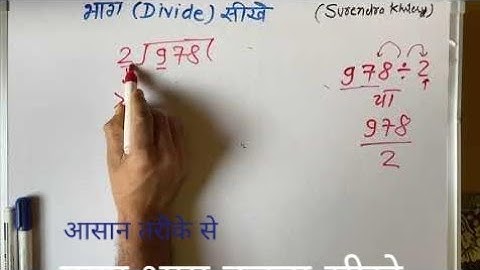 भाग (Divide) सीखे
(Surendra Khilery)
2)978(
978÷2
या
978
2
आसान तरीके से